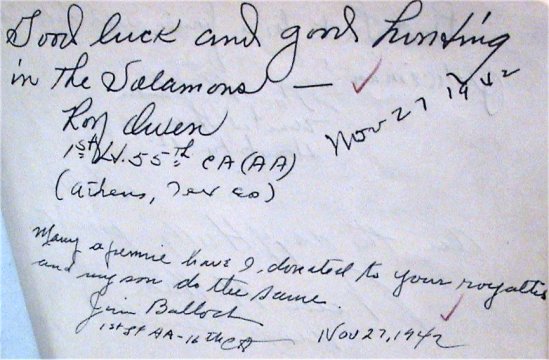 Good luck and good hunting
in the Solamons —
Nov 27 1942
Roy Owen
1st Lt. 55th CA (AA)
(Athens, Texas)
Many a pennie have I donated to your royalties
and my son do the same.
Jim Bulloch
1st Lt AA-16th CA
Nov 27, 1942